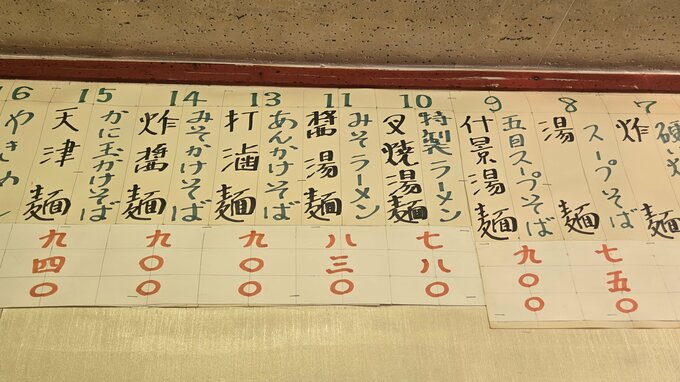 7
炸麺
8
スープそば
湯麺
七五〇
9
五目スープそば
什景湯麺
九〇〇
10
特製ラーメン
叉焼湯麺
七八〇
11
みそラーメン
醬湯麺
八三〇
13
あんかけそば
打滷麺
九〇〇
14
みそかけそば
炸醬麺
九〇〇
15
かに玉かけそば
天津麺
九四〇
16
やきめし